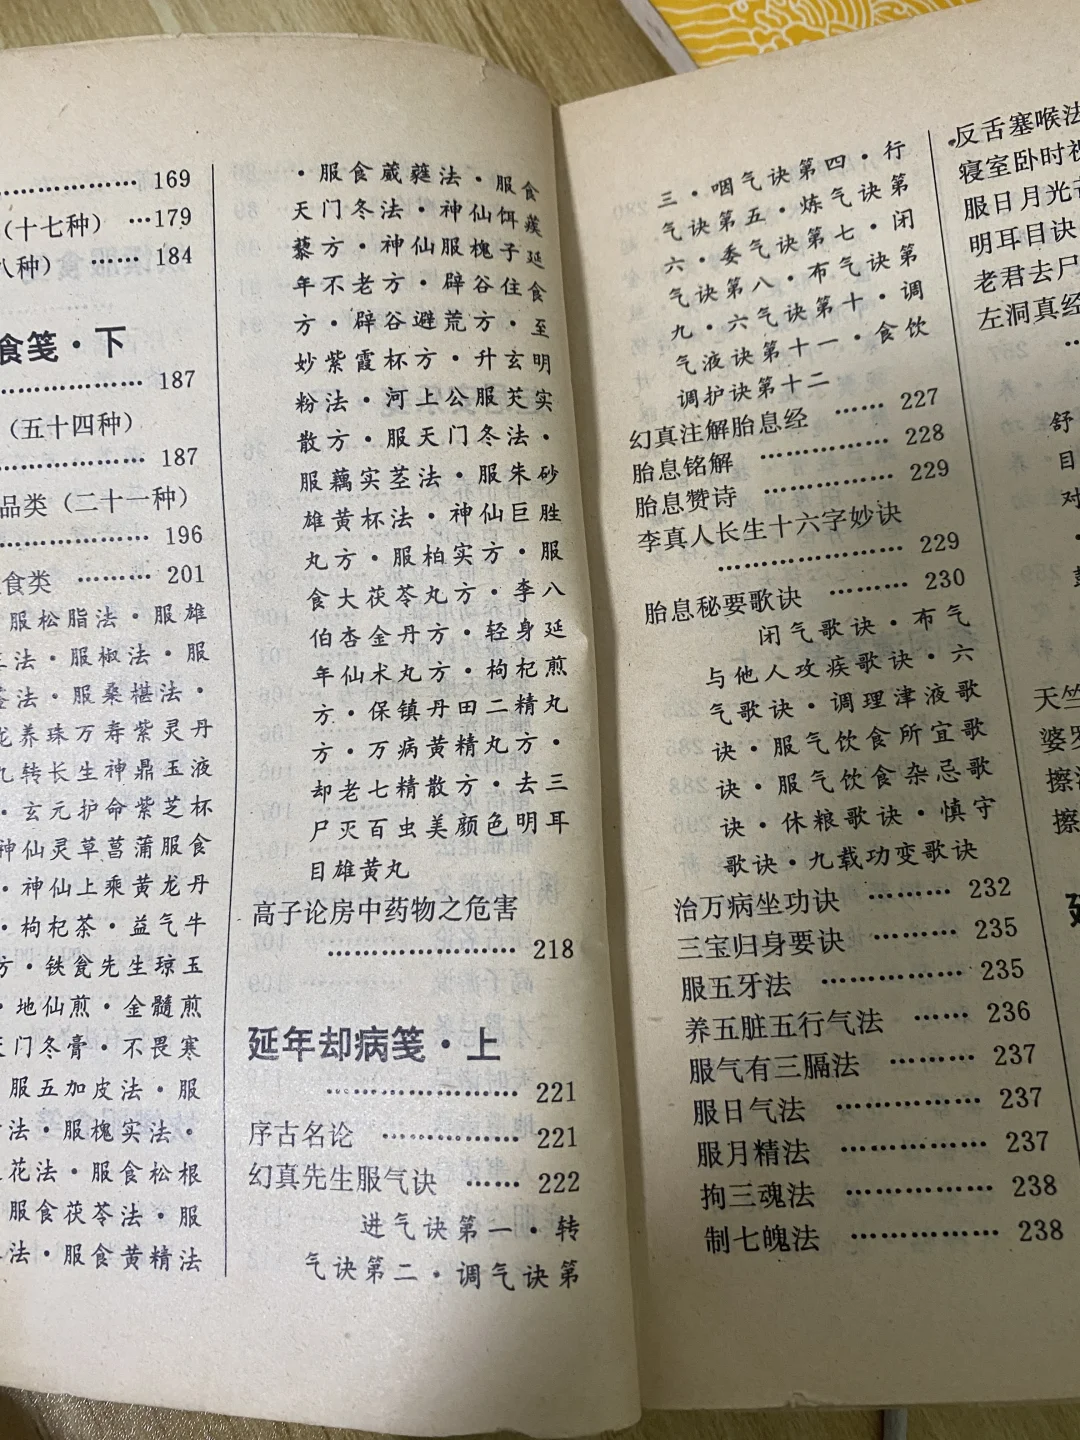 169
（十七种） …179
八种） …… 184
食笺·下
187
（五十四种）
187
品类（二十一种）
196
食类 ……… 201
服松脂法·服雄
法·服椒法·服
法·服桑椹法·
龙养珠万寿紫灵丹
九转长生神鼎玉液
·玄元护命紫芝杯
神仙灵草菖蒲服食
·神仙上乘黄龙丹
·枸杞茶·益气牛
方·铁瓮先生琼玉
·地仙煎·金髓煎
天门冬膏·不畏寒
服五加皮法·服
法·服槐实法·
花法·服食松根
服食茯苓法·服
法·服食黄精法
·服食葳蕤法·服食
天门冬法·神仙饵蒺
藜方·神仙服槐子延
年不老方·辟谷住食
方·辟谷避荒方·至
妙紫霞杯方·升玄明
粉法·河上公服芡实
散方·服天门冬法·
服藕实茎法·服朱砂
雄黄杯法·神仙巨胜
丸方·服柏实方·服
食大茯苓丸方·李八
伯杏金丹方·轻身延
年仙术丸方·枸杞煎
方·保镇丹田二精丸
方·万病黄精丸方·
却老七精散方·去三
尸灭百虫美颜色明耳
目雄黄丸
高子论房中药物之危害
……………… 218
延年却病笺·上
……………… 221
序古名论 ………… 221
幻真先生服气诀 …… 222
进气诀第一·转
气诀第二·调气诀第
三·咽气诀第四·行
气诀第五·炼气诀第
六·委气诀第七·闭
气诀第八·布气诀第
九·六气诀第十·调
气液诀第十一·食饮
调护诀第十二
幻真注解胎息经 …… 227
胎息铭解 ………… 228
胎息赞诗 ………… 229
李真人长生十六字妙诀
……………… 229
胎息秘要歌诀 ……… 230
闭气歌诀·布气
与他人攻疾歌诀·六
气歌诀·调理津液歌
诀·服气饮食所宜歌
诀·服气饮食杂忌歌
诀·休粮歌诀·慎守
歌诀·九载功变歌诀
治万病坐功诀 ……… 232
三宝归身要诀 ……… 235
服五牙法 ………… 235
养五脏五行气法 …… 236
服气有三膈法 ……… 237
服日气法 ………… 237
服月精法 ………… 237
拘三魂法 ………… 238
制七魄法 ………… 238
反舌塞喉法
寝室卧时祝
服日月光芒
明耳目诀
老君去尸
左洞真经
舒
目
对
天竺
婆罗
擦
擦